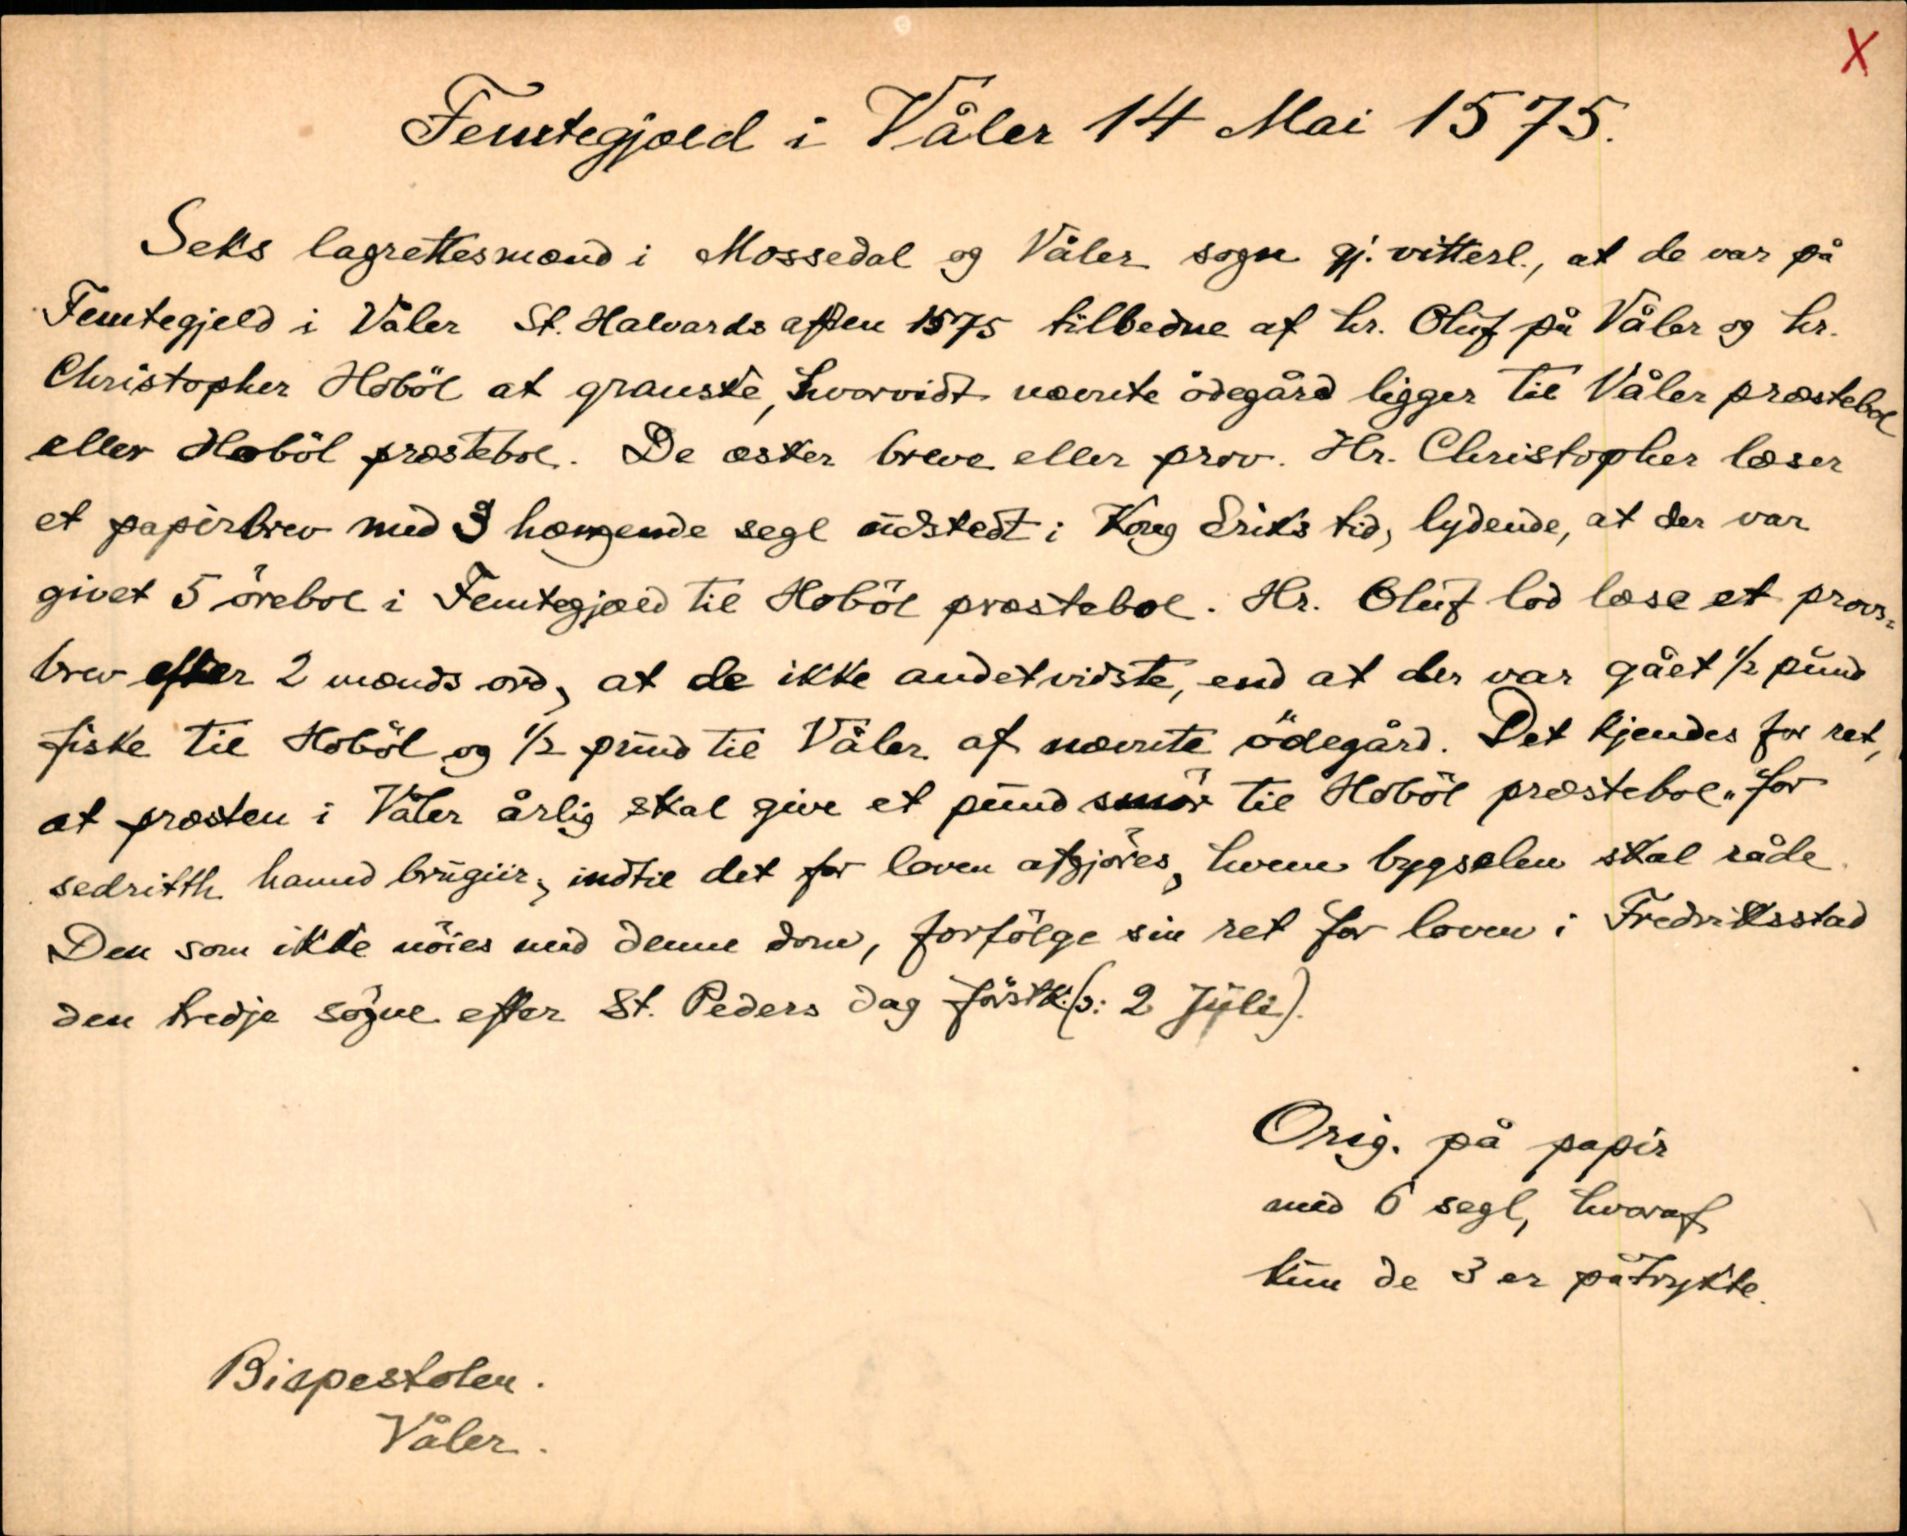 X
Femtegjæld i Våler 14 Mai 1575.
Seks lagrettesmænd i Mossedal og Våler sogn gj. vitterl., at de var på
Femtegjeld i Våler St. Halvards aften 1575 tilbedne af hr. Oluf på Våler og hr.
Christopher Hoböl at granske, hvorvidt nævnte ödegård ligger til Våler præstebol
eller Hoböl præstebol. De æsker breve eller prov. Hr. Christopher læser
et papirbrev med 3 hængende segl udstedt i Kong Eriks tid, lydende, at der var
givet 5 örebol i Femtegjæld til Hoböl præstebol. Hr. Oluf lod læse et provs-
brev efter 2 mænds ord, at de ikke andet vidste, end at der var gået 1/2 pund
fiske til Hoböl og 1/2 pund til Våler af nævnte ödegård. Det kjendes for ret,
at præsten i Våler årlig skal give et pund smör til Hoböl præstebol „for
sedritth hannd brugiir, indtil det for loven afgjöres, hvem bygselen skal råde.
Den som ikke nöies med denne dom, forfölge sin ret for loven i Fredriksstad
den tredje sögne efter St. Peders dag förstk. (ɔ: 2 Juli).
Orig. på papir
med 6 segl, hvoraf
kun de 3 er påtrykte.
Bispestolen.
Våler.